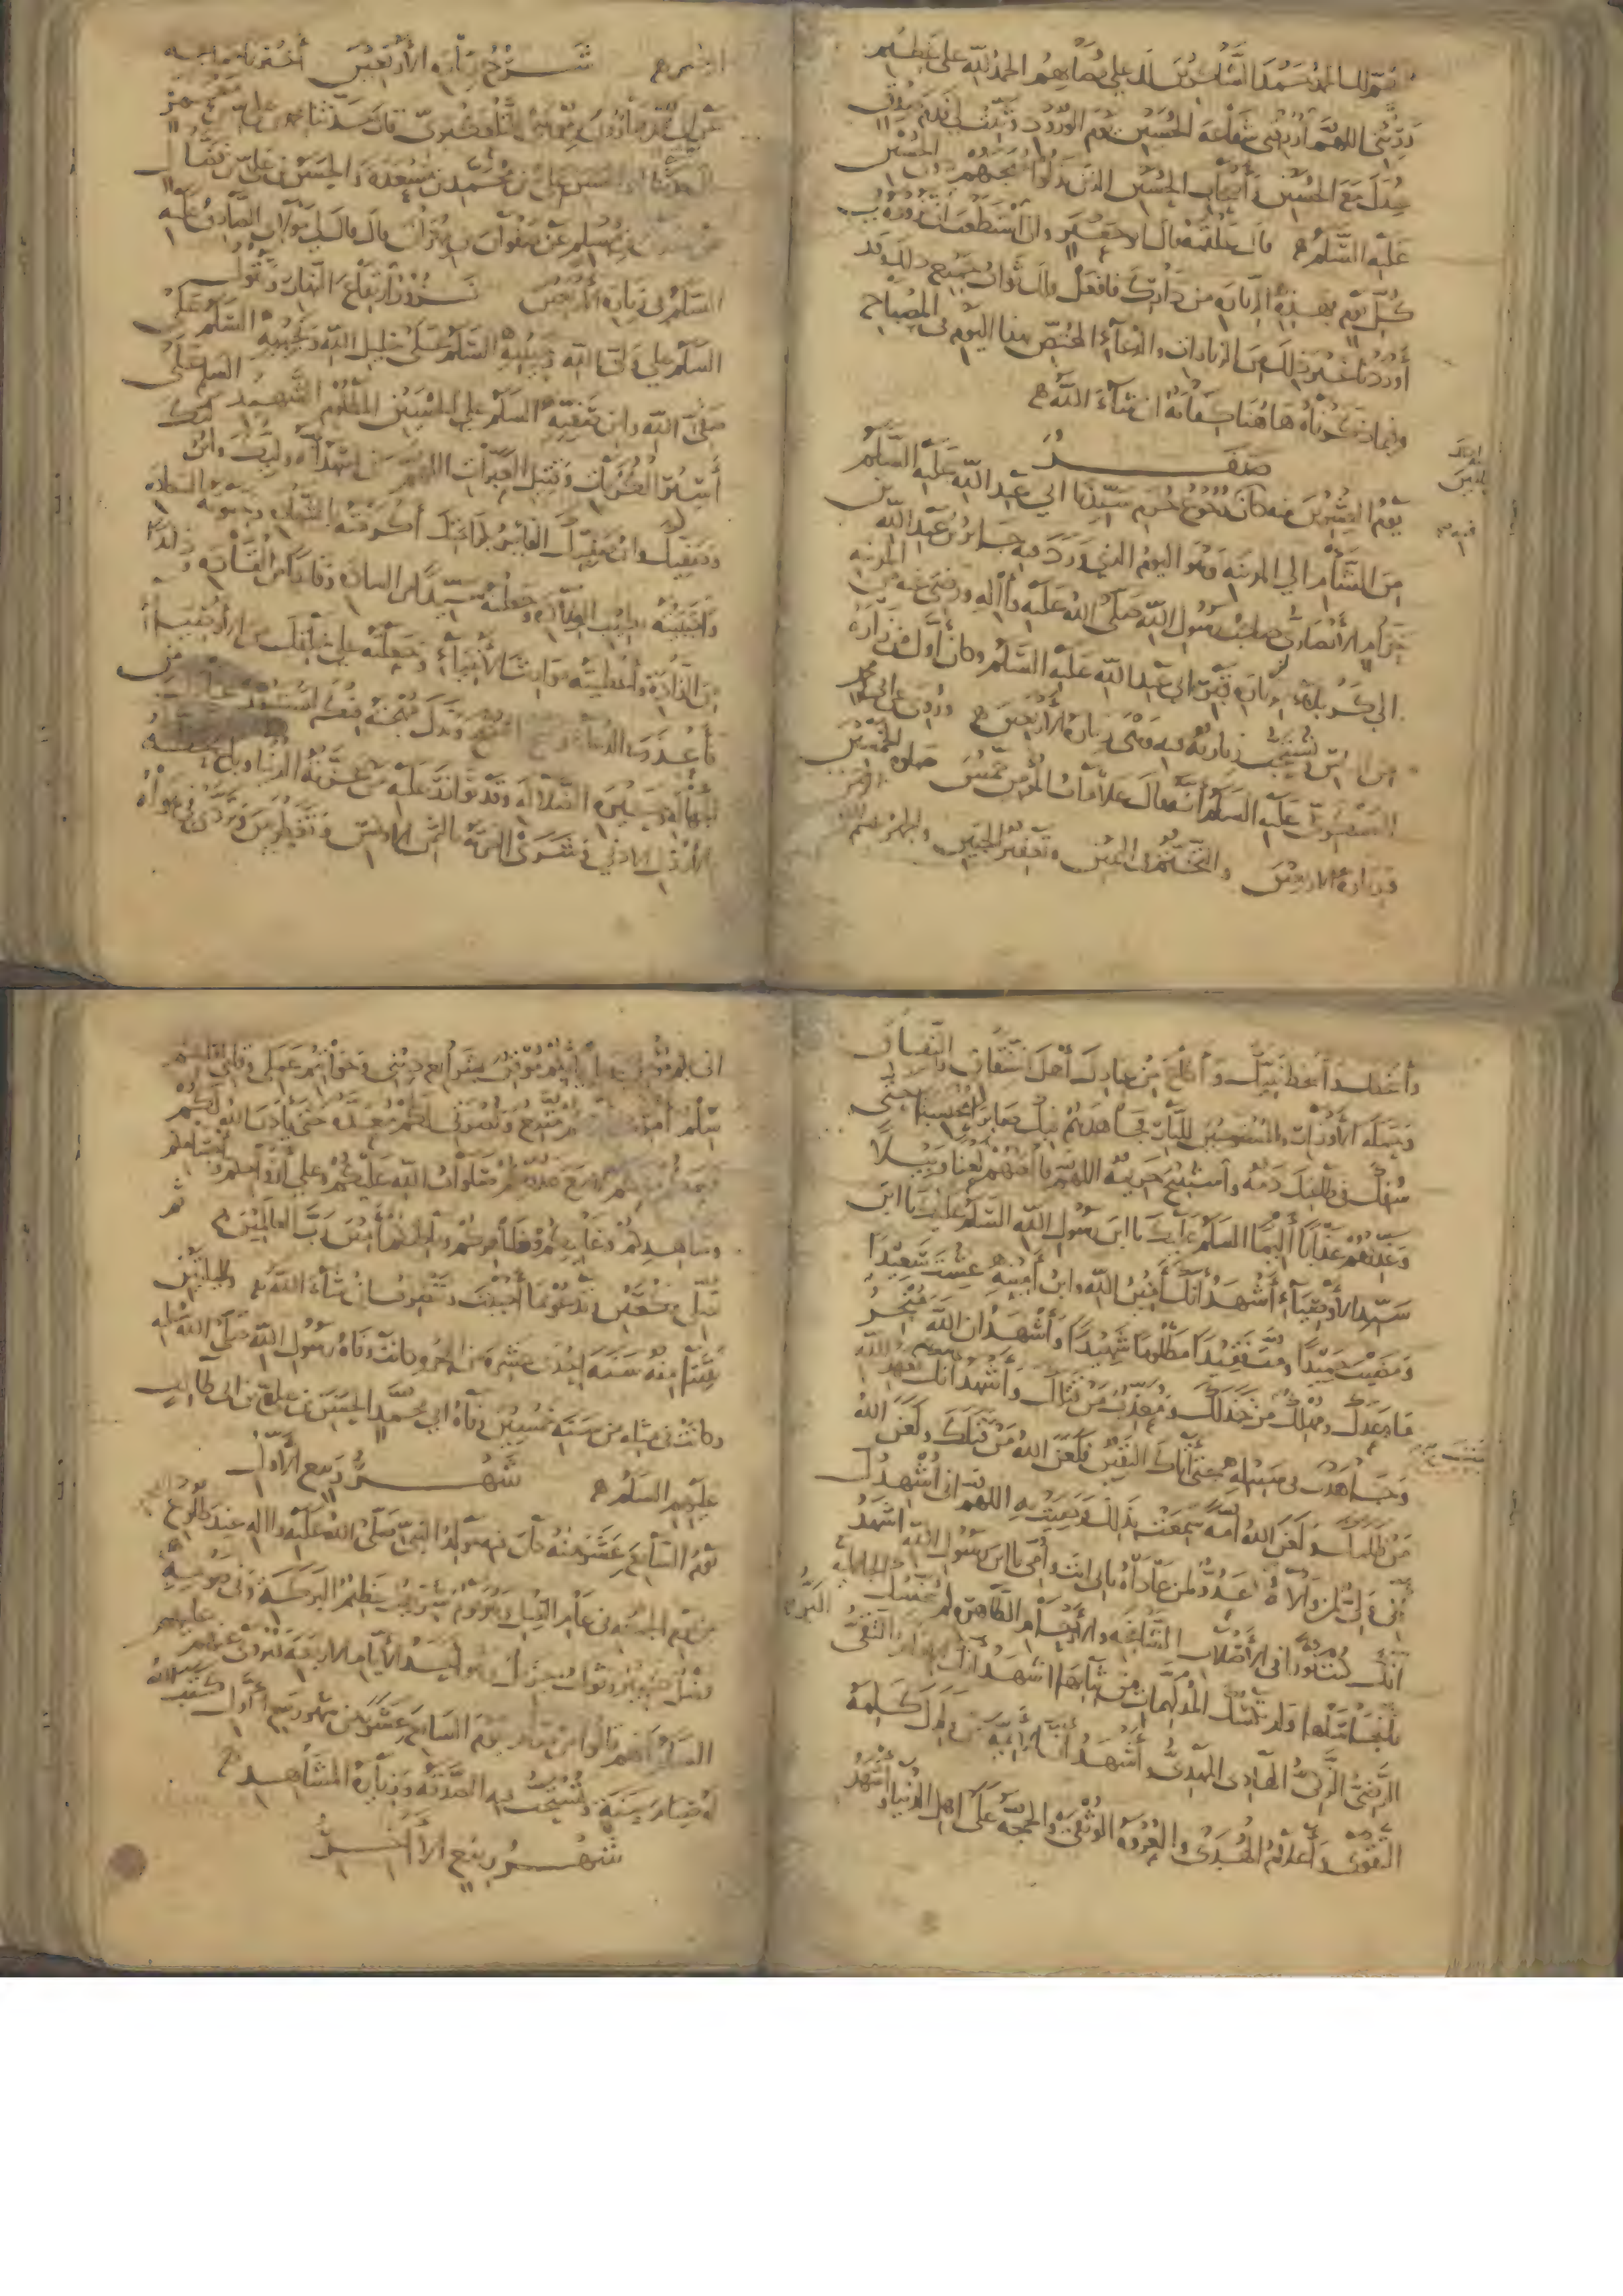 اللهم لك الحمد حمد الشاكرين لك على مصابهم الحمد لله على عظيم
رزيتي اللهم ارزقني شفاعة الحسين يوم الورود وثبت لي قدم صدق
عندك مع الحسين وأصحاب الحسين الذين بذلوا مهجهم دون الحسين
عليه السلام قال علقمة قال ابو جعفر وان استطعت ان تزوره في
كل يوم بهذه الزيارة من دارك فافعل ولك ثواب جميع ذلك وقد
أوردنا غير ذلك من الزيارات والدعاء المختص بهذا اليوم في المصباح
وفيما ذكرناه هاهنا كفاية ان شاء الله
صفر
يوم العشرين منه كان رجوع حرم سيدنا ابي عبد الله عليه السلام
من الشام الى المدينة وهو اليوم الذي ورد فيه جابر بن عبد الله بن
حزام الأنصاري صاحب رسول الله صلى الله عليه وآله ورضي عنه من المدينة
الى كربلاء لزيارة قبر ابي عبد الله عليه السلام وكان أول من زاره
من الناس ويستحب زيارته فيه وهي زيارة الأربعين وروي عن ابي محمد
العسكري عليه السلام أنه قال علامات المؤمن خمس صلوة الخمسين
وزيارة الأربعين والتختم في اليمين وتعفير الجبين والجهر ببسم الله الرحمن
الرحيم شرح زيارة الأربعين أخبرنا جماعة
عن ابي محمد هارون بن موسى التلعكبري قال حدثنا محمد بن علي بن معمر
قال حدثنا ابو الحسن علي بن محمد بن مسعدة والحسن بن علي بن فضال
عن سعدان بن مسلم عن صفوان بن مهران قال قال لي مولاي الصادق عليه
السلم في زيارة الأربعين تزور ارتفاع النهار وتقول
السلم على ولي الله وحبيبه السلم على خليل الله ونجيبه السلم على
صفي الله وابن صفيه السلم على الحسين المظلوم الشهيد السلم على
أسير الكربات وقتيل العبرات اللهم إني اشهد أنه وليك وابن وليك
وصفيك وابن صفيك الفائز بكرامتك أكرمته بالشهادة وحبوته بالسعادة
واجتبيته بطيب الولادة وجعلته سيدا من السادة وقائدا من القادة وذائدا
من الذادة وأعطيته مواريث الأنبياء وجعلته على خلقك من الأوصياء
فأعذر في الدعاء ومنح النصح وبذل مهجته فيك ليستنقذ عبادك من
الجهالة وحيرة الضلالة وقد توازر عليه من غرته الدنيا وباع حظه
بالأرذل الأدنى وشرى آخرته بالثمن الاوكس وتغطرس وتردى في هواه
وأسخطك وأسخط نبيك وأطاع من عبادك أهل الشقاق والنفاق
وحملة الأوزار المستوجبين للنار فجاهدهم فيك صابرا محتسبا حتى
سفك في طاعتك دمه واستبيح حريمه اللهم فالعنهم لعنا وبيلا
وعذبهم عذابا أليما السلم عليك يا ابن رسول الله السلم عليك يا ابن
سيد الأوصياء أشهد أنك أمين الله وابن أمينه عشت سعيدا
ومضيت حميدا ومت فقيدا مظلوما شهيدا وأشهد ان الله منجز
ما وعدك ومهلك من خذلك ومعذب من قتلك وأشهد أنك وفيت بعهد الله
وجاهدت في سبيله حتى أتاك اليقين فلعن الله من قتلك ولعن الله
من ظلمك ولعن الله أمة سمعت بذلك فرضيت به اللهم إني أشهدك
أني ولي لمن والاه وعدو لمن عاداه بابي انت وأمي يا ابن رسول الله اشهد
انك كنت نورا في الأصلاب الشامخة والأرحام الطاهرة لم تنجسك الجاهلية
بأنجاسها ولم تلبسك المدلهمات من ثيابها اشهد أنك الامام البر التقي
الرضي الزكي الهادي المهدي وأشهد أن الأئمة من ولدك كلمة
التقوى وأعلام الهدى والعروة الوثقى والحجة على أهل الدنيا وأشهد
اني بكم مؤمن وبإيابكم موقن بشرايع ديني وخواتيم عملي وقلبي لقلبكم
سلم وأمري لأمركم متبع ونصرتي لكم معدة حتى يأذن الله لكم
فمعكم معكم لا مع عدوكم صلوات الله عليكم وعلى أرواحكم وأجسامكم
وشاهدكم وغائبكم وظاهركم وباطنكم آمين رب العالمين ثم
تصلي ركعتين وتدعو بما أحببت وتنصرف ان شاء الله ولليلتين
بقيتا منه سنة إحدى عشرة من الهجرة كانت وفاة رسول الله صلى الله عليه وآله
وكانت في مثله من سنة خمسين وفاة ابي محمد الحسن بن علي بن ابي طالب
عليهم السلام شهر ربيع الأول
يوم السابع عشر منه كان فيه مولد النبي صلى الله عليه وآله عند طلوع
الفجر من يوم الجمعة في عام الفيل وهو يوم شريف عظيم البركة وفي صومه
فضل كبير وثواب جزيل وهو أحد الأيام الأربعة فروي عنهم عليهم
السلام أنهم قالوا من صام يوم السابع عشر من شهر ربيع الأول كتب الله
له صيام سنة ويستحب فيه الصدقة وزيارة المشاهد
شهر ربيع الآخر